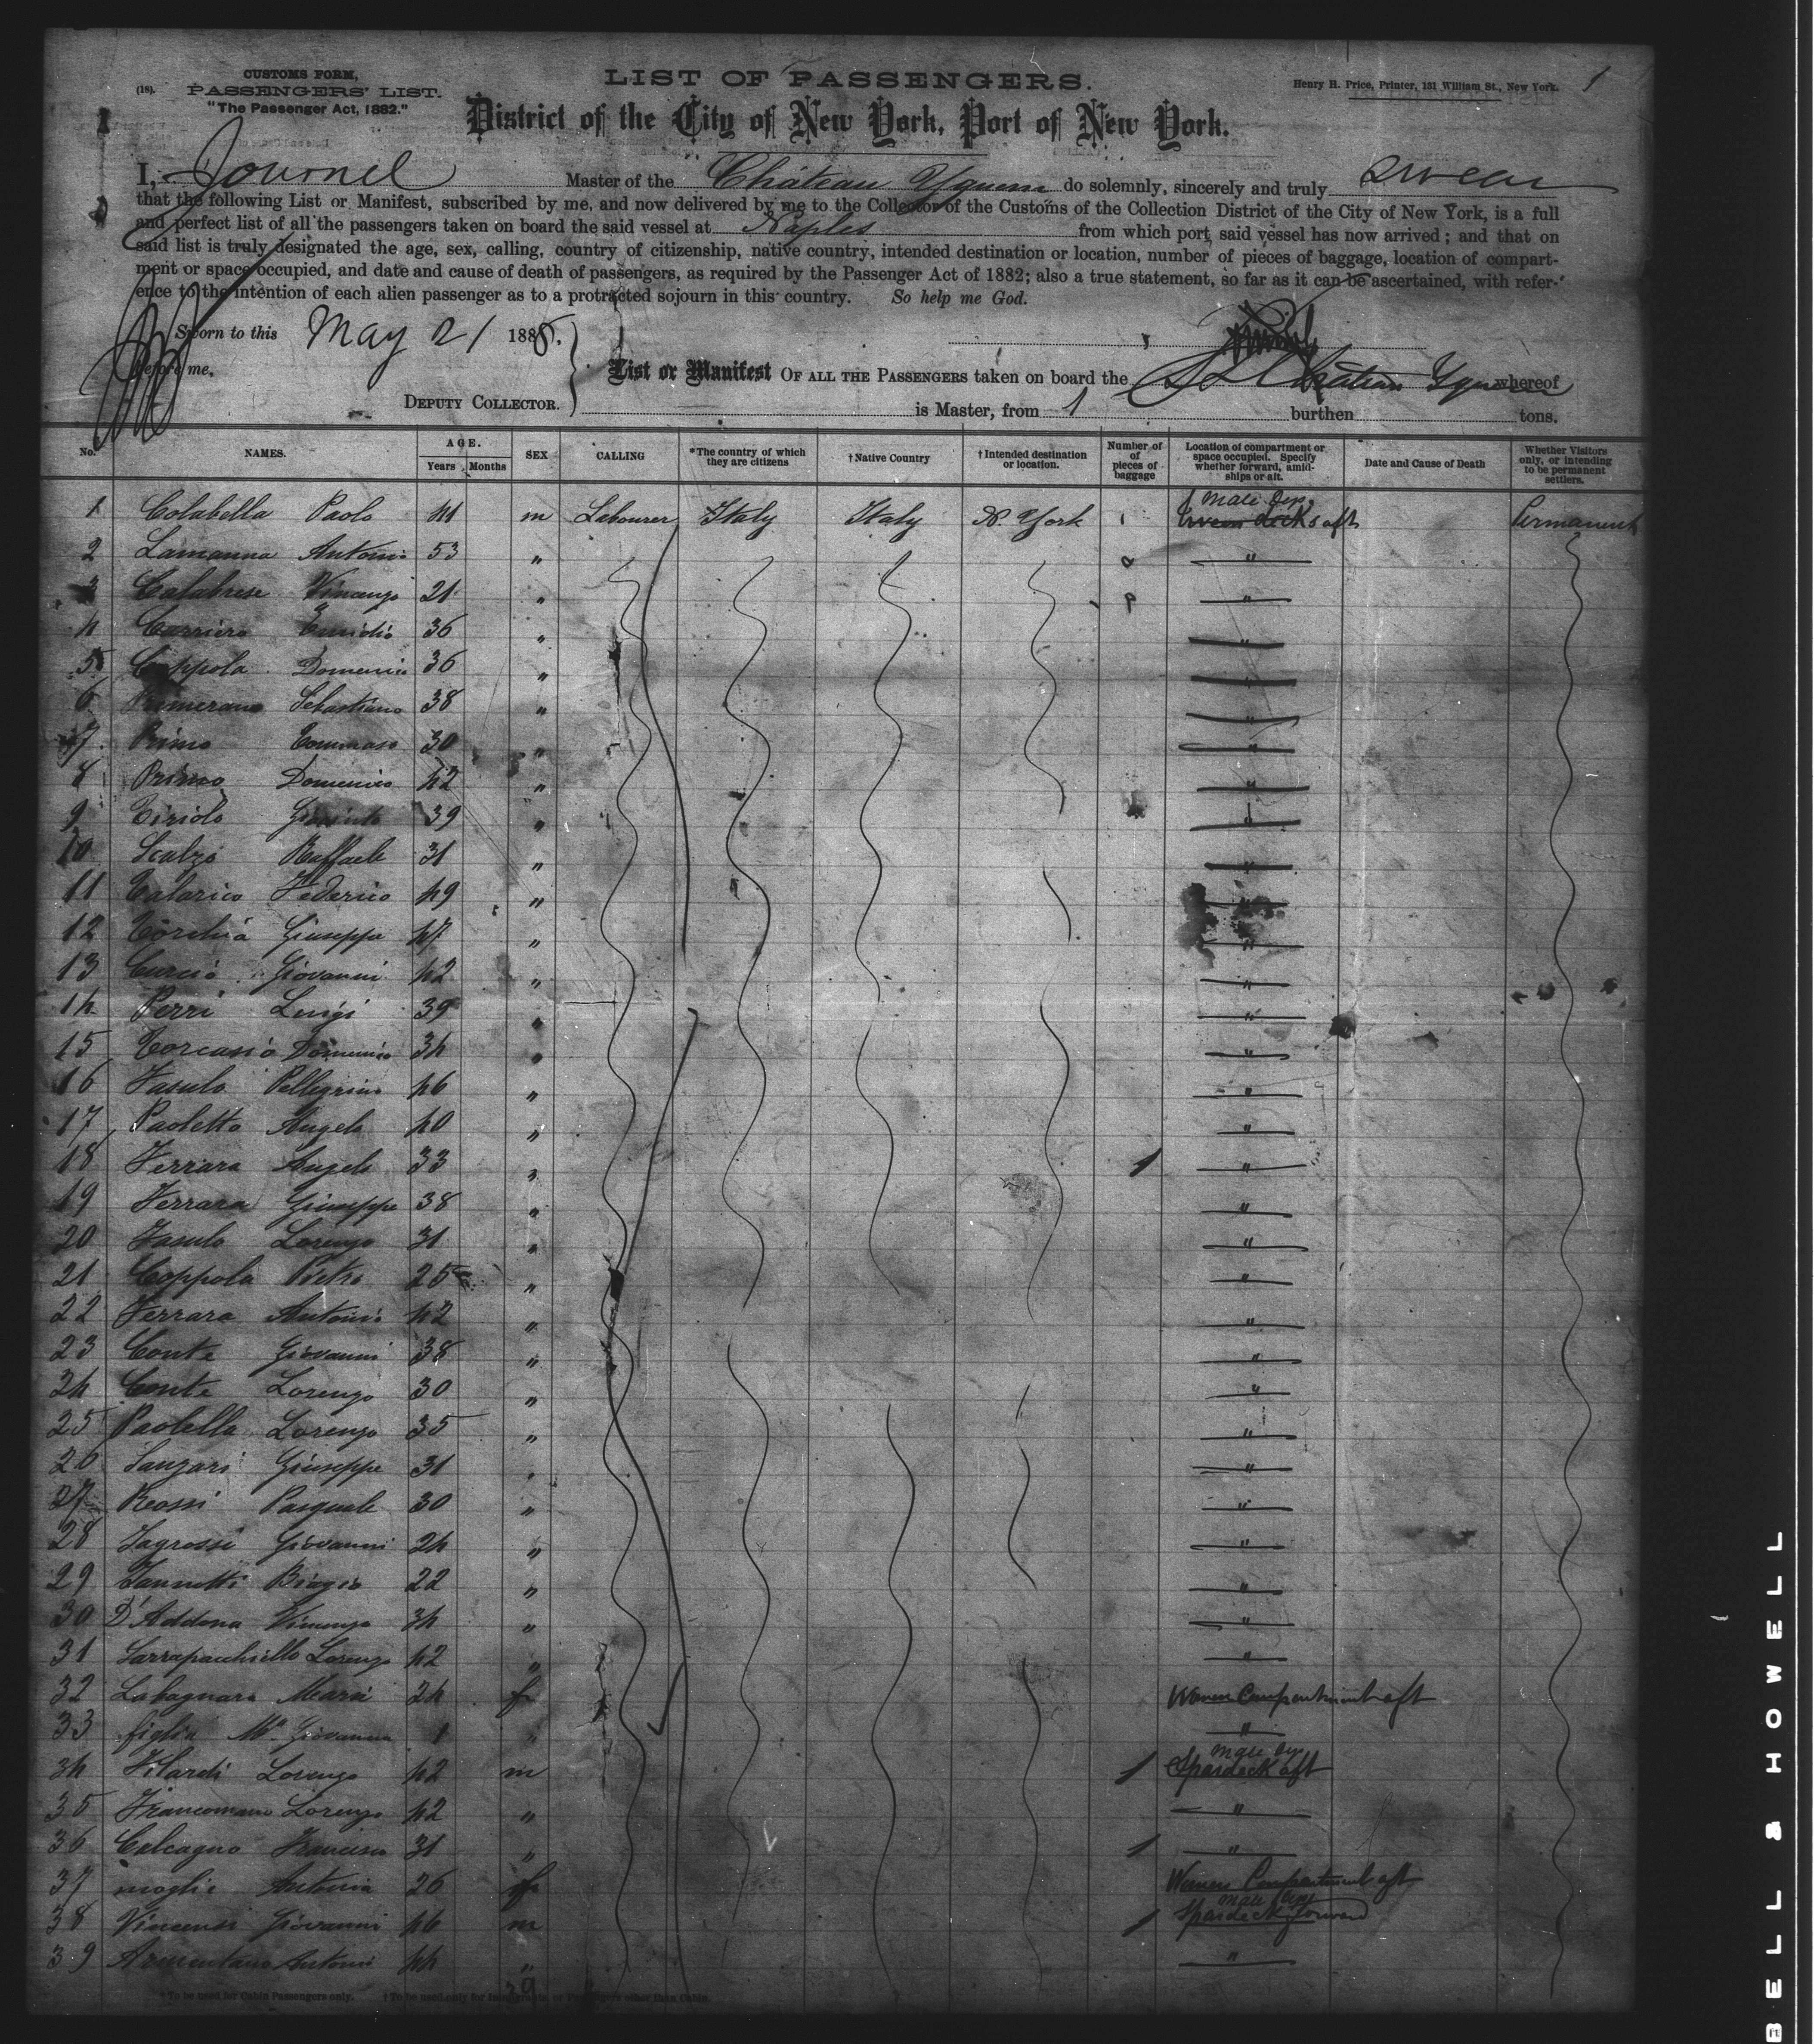 CUSTOMS FORM,
(18). PASSENGERS' LIST.
"The Passenger Act, 1882."
LIST OF PASSENGERS.
Henry H. Price, Printer, 131 William St., New York. 1
District of the City of New York, Port of New York.
I, Journel Master of the Château Yquem do solemnly, sincerely and truly swear
that the following List or Manifest, subscribed by me, and now delivered by me to the Collector of the Customs of the Collection District of the City of New York, is a full
and perfect list of all the passengers taken on board the said vessel at Naples from which port said vessel has now arrived; and that on
said list is truly designated the age, sex, calling, country of citizenship, native country, intended destination or location, number of pieces of baggage, location of compart-
ment or space occupied, and date and cause of death of passengers, as required by the Passenger Act of 1882; also a true statement, so far as it can be ascertained, with refer-
ence to the intention of each alien passenger as to a protracted sojourn in this country. So help me God.
Sworn to this May 21 1888.
Before me,
DEPUTY COLLECTOR.
List or Manifest OF ALL THE PASSENGERS taken on board the SS Château Yquem whereof
is Master, from 1 burthen tons.
No. NAMES. AGE. Years Months SEX CALLING *The country of which they are citizens †Native Country †Intended destination or location. Number of pieces of baggage Location of compartment or space occupied. Specify whether forward, amidships or aft. Date and Cause of Death Whether Visitors only, or intending to be permanent settlers.
1 Colabella Paolo 41 m Labourer Italy Italy N. York 1 aft Permanent
2 Lamanna Antonio 53 " "
3 Calabrese Vincenzo 21 " "
4 Carriero Emidio 36 " "
5 Coppola Domenico 36 " "
6 Primerano Sebastiano 38 " "
7 Primo Tommaso 30 " "
8 Primo Domenico 42 " "
9 Tiriolo 39 " "
10 Scalzo Raffaele 31 " "
11 Talarico Federico 49 " "
12 Torchia Giuseppe 47 " "
13 Curcio Giovanni 42 " "
14 Perri Luigi 39 " "
15 Torcasio Domenico 34 " "
16 Fasulo Pellegrino 46 " "
17 Paoletto Angelo 40 " "
18 Ferrara Angelo 33 " 1 "
19 Ferrara Giuseppe 38 " "
20 Fasulo Lorenzo 31 " "
21 Coppola Pietro 25 " "
22 Ferrara Antonio 42 " "
23 Conte Giovanni 38 " "
24 Conte Lorenzo 30 " "
25 Paolella Lorenzo 35 " "
26 Sanzari Giuseppe 31 " "
27 Reossi Pasquale 30 " "
28 Sagrossi Giovanni 24 " "
29 Iannotti Biagio 22 " "
30 D'Addona Vincenzo 34 " "
31 Sarrapochiello Lorenzo 42 " "
32 Labagnara Maria 24 f Women Compartment aft
33 figlia Ma. Giovanna 1 " "
34 Filardi Lorenzo 42 m 1 Spardeck aft
35 Francomano Lorenzo 42 " "
36 Calcagno Francesco 31 " 1 "
37 moglie Antonia 26 f Women Compartment aft
38 Vincensi Giovanni 46 m 1 Spardeck forward
39 Armentano Antonio 44 " "
* To be used for Cabin Passengers only. † To be used only for Immigrants, or Passengers other than Cabin.
BELL & HOWELL